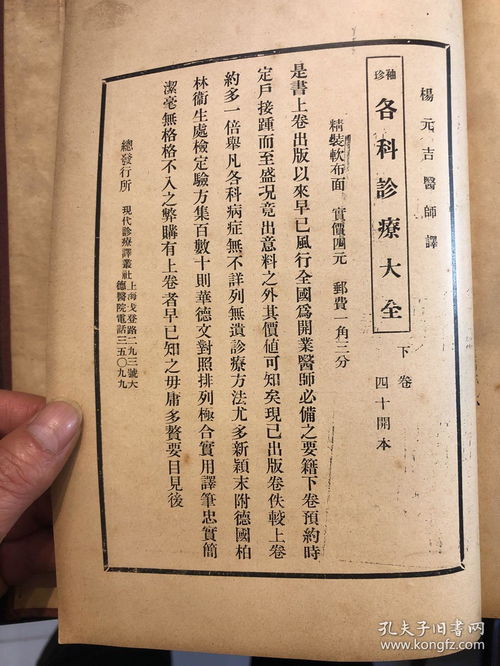 楊元吉醫師譯
袖珍 各科診療大全 下卷 四十開本
精裝軟布面 實價四元 郵費一角三分
是書上卷出版以來早已風行全國爲開業醫師必備之要籍下卷預約時
定戶接踵而至盛况竟出意料之外其價値可知矣現已出版卷佚較上卷
約多一倍舉凡各科病症無不詳列無遺診療方法尤多新穎末附德國柏
林衞生處檢定驗方集百數十則華德文對照排列極合實用譯筆忠實簡
潔毫無格格不入之弊購有上卷者早已知之毋庸多贅要目見後
總發行所 現代診療譯叢社 上海戈登路二九三號大德醫院電話三五〇九九
孔夫子旧书网
www.kongfz.com